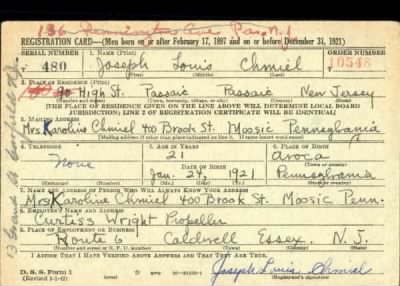 136 Pennington Ave Pas. N.J
REGISTRATION CARD—(Men born on or after February 17, 1897 and on or before December 31, 1921)
SERIAL NUMBER 1. NAME (Print) ORDER NUMBER
480 Joseph Louis Chmiel 10548
(First) (Middle) (Last)
2. PLACE OF RESIDENCE (Print)
90 High St. Passaic Passaic New Jersey
(Number and street) (Town, township, village, or city) (County) (State)
[THE PLACE OF RESIDENCE GIVEN ON THE LINE ABOVE WILL DETERMINE LOCAL BOARD
JURISDICTION; LINE 2 OF REGISTRATION CERTIFICATE WILL BE IDENTICAL]
3. MAILING ADDRESS
Mrs Karoline Chmiel 400 Brook St. Moosic Pennsylvania
[Mailing address if other than place indicated on line 2. If same insert word same]
4. TELEPHONE 5. AGE IN YEARS 6. PLACE OF BIRTH
None 21 Avoca
DATE OF BIRTH (Town or county)
Jan. 24, 1921 Pennsylvania
(Exchange) (Number) (Mo.) (Day) (Yr.) (State or country)
7. NAME AND ADDRESS OF PERSON WHO WILL ALWAYS KNOW YOUR ADDRESS
Mrs Karoline Chmiel 400 Brook St. Moosic Penn.
8. EMPLOYER'S NAME AND ADDRESS
Curtiss Wright Propeller
9. PLACE OF EMPLOYMENT OR BUSINESS
Route 6 Caldwell Essex N. J.
(Number and street or R. F. D. number) (Town) (County) (State)
I AFFIRM THAT I HAVE VERIFIED ABOVE ANSWERS AND THAT THEY ARE TRUE.
D. S. S. Form 1
(Revised 1-1-42) (over) Joseph Louis Chmiel
(Registrant's signature)